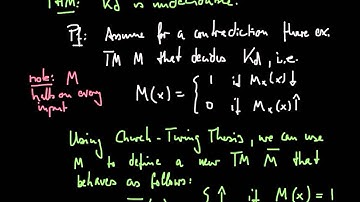 THM: Kd is undecidable.
Pf: Assume for a contradiction there ex.
TM M that decides Kd, i.e.
note: M
halts on every
input
M(x) = { 1 if Mx(x)↓
0 if Mx(x)↑
Using Church-Turing Thesis, we can use
M to define a new TM M̅ that
behaves as follows:
↑ if M(x) = 1